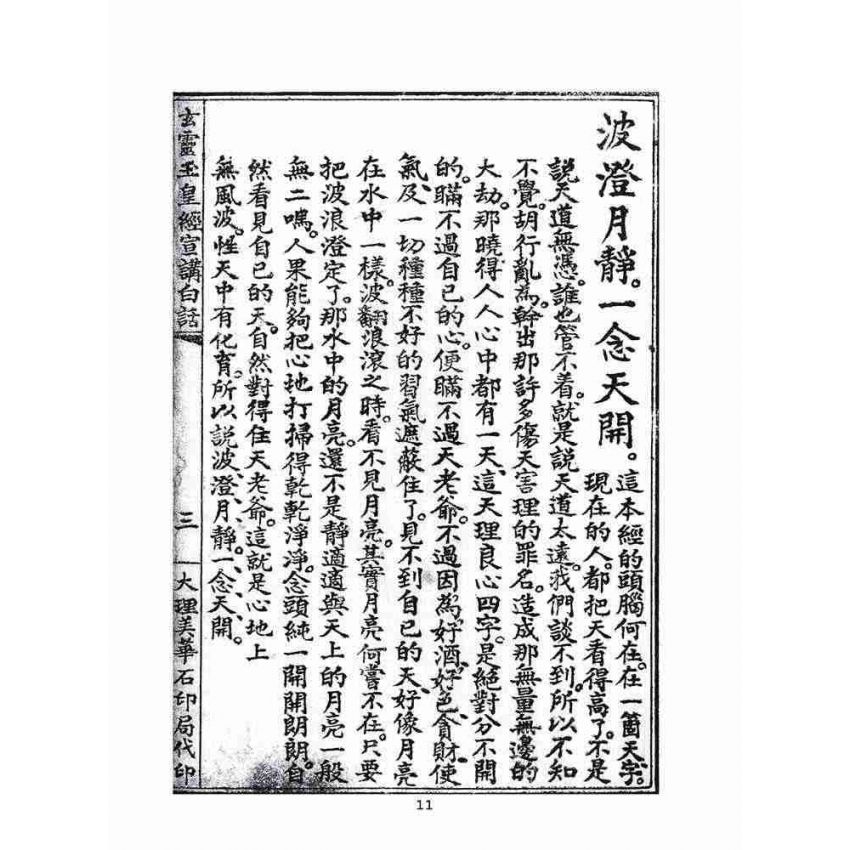 波澄月靜。一念天開。
這本經的頭腦何在。在一箇天字。
現在的人。都把天看得高了。不是
說天道無憑。誰也管不着。就是說天道太遠。我們談不到。所以不知
不覺。胡行亂為。幹出那許多傷天害理的罪名。造成那無量無邊的
大劫。那曉得人人心中都有一天。這天理良心四字。是絕對分不開
的。瞞不過自己的心。便瞞不過天老爺。不過因為好酒、好色、貪財、使
氣、及一切種種不好的習氣遮蔽住了。見不到自己的天。好像月亮
在水中一樣。波翻浪滾之時。看不見月亮。其實月亮何嘗不在。只要
把波浪澄定了。那水中的月亮。還不是靜適適與天上的月亮一般
無二嗎。人果能夠把心地打掃得乾乾淨淨。念頭純一開開朗朗。自
然看見自己的天。自然對得住天老爺。這就是心地上
無風波。性天中有化育。所以說波、澄、月、靜、一、念、天、開。
玄靈玉皇經宣講白話
三
大理美華石印局代印
11